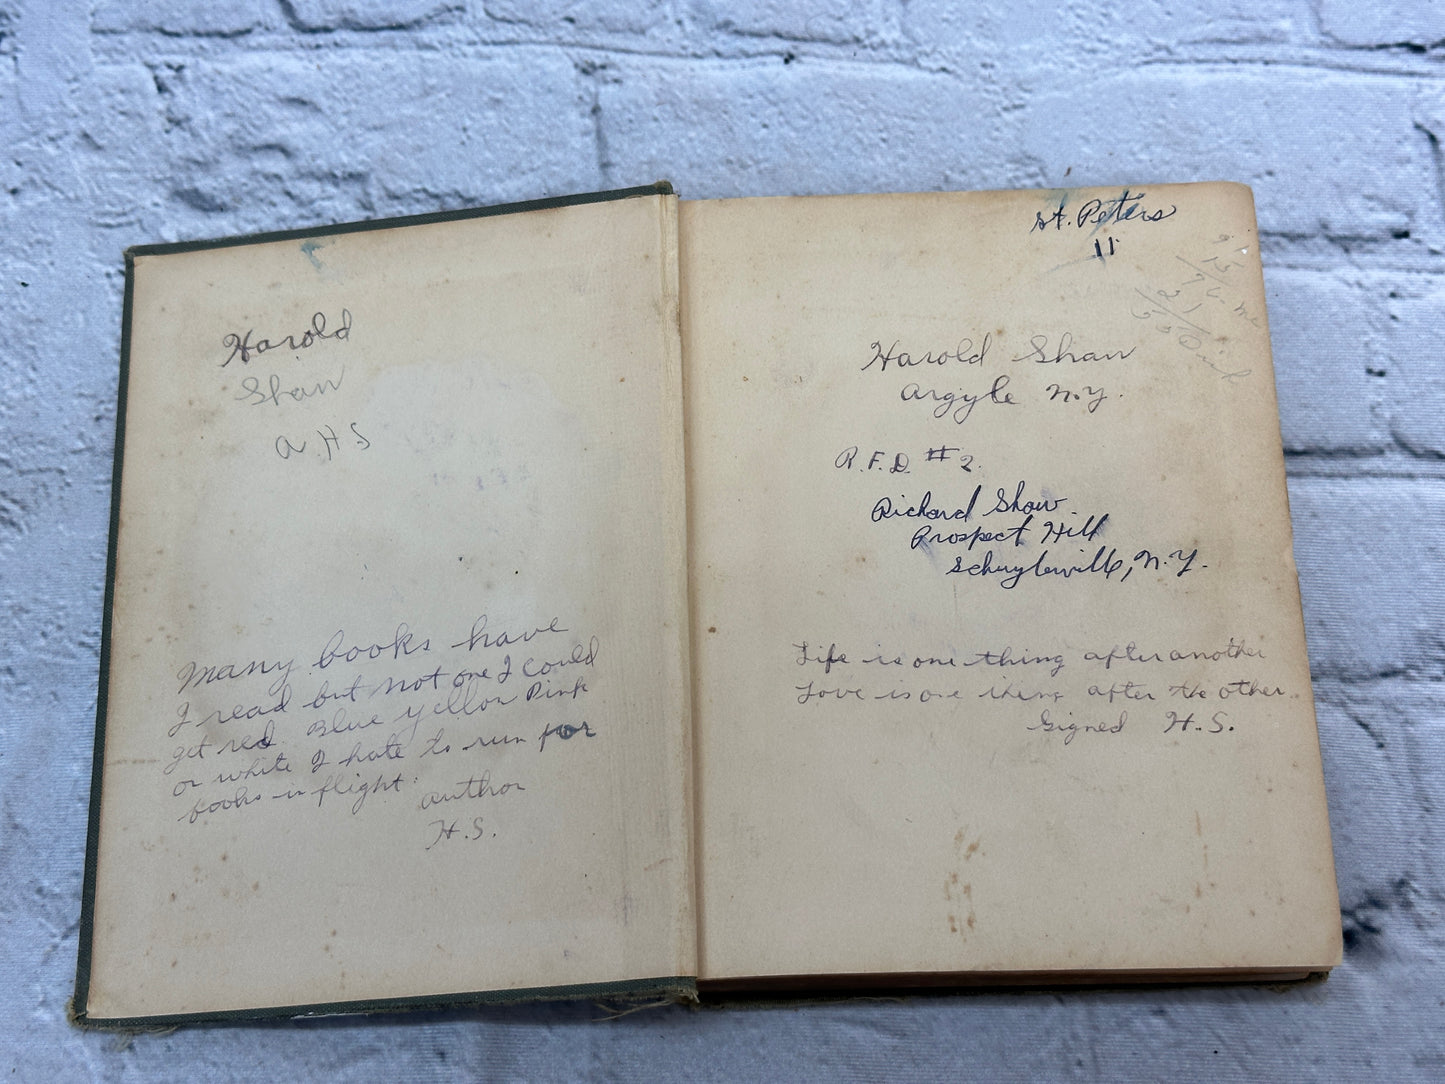 Harold
Shaw
A.H.S
Many books have
I read but not one I could
get red. Blue yellow Pink
or white I hate to run for
books in flight.
Author
H.S.
St. Peters
11
Harold Shaw
Argyle N.Y.
R.F.D. #2.
Richard Shaw.
Prospect Hill
Schuylerville, N.Y.
Life is one thing after another
Love is one thing after the other.
Signed H.S.